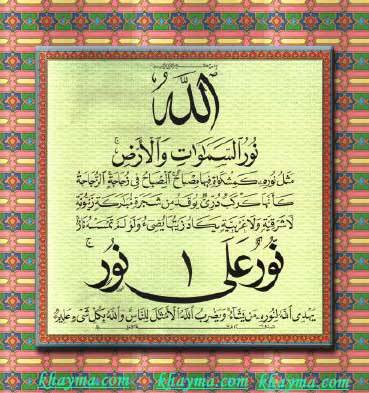 الله
نُورُ السَّمَٰوَاتِ وَالْأَرْضِ
مَثَلُ نُورِهِ كَمِشْكَاةٍ فِيهَا مِصْبَاحٌ الْمِصْبَاحُ فِي زُجَاجَةٍ الزُّجَاجَةُ
كَأَنَّهَا كَوْكَبٌ دُرِّيٌّ يُوقَدُ مِن شَجَرَةٍ مُبَٰرَكَةٍ زَيْتُونَةٍ
لَا شَرْقِيَّةٍ وَلَا غَرْبِيَّةٍ يَكَادُ زَيْتُهَا يُضِيءُ وَلَوْ لَمْ تَمْسَسْهُ نَارٌ
نُورٌ عَلَى نُورٍ
يَهْدِي اللهُ لِنُورِهِ مَن يَشَاءُ وَيَضْرِبُ اللهُ الْأَمْثَالَ لِلنَّاسِ وَاللهُ بِكُلِّ شَيْءٍ عَلِيمٌ
khayma.com khayma.com khayma.com